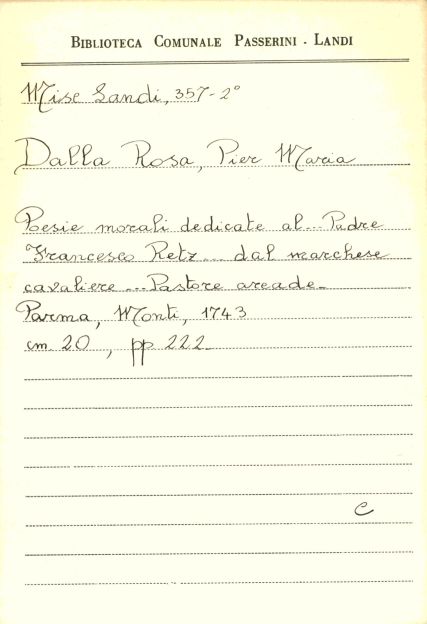 BIBLIOTECA COMUNALE PASSERINI - LANDI
Misc Landi, 357-2°
Dalla Rosa, Pier Maria
Poesie morali dedicate al... Padre
Francesco Retz... dal marchese
cavaliere... Pastore arcade_
Parma, Monti, 1743
cm 20, pp 222_
C